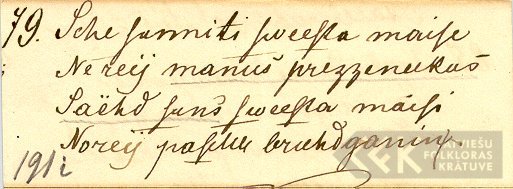 79. Sche sunniti sweesta maise
Ne reij mannus prezzeneekus
Saehd suns sweesta maisi
Noreij paschu bruhdganiņ.
1912
LATVIEŠU
FOLKLORAS
KRĀTUVE